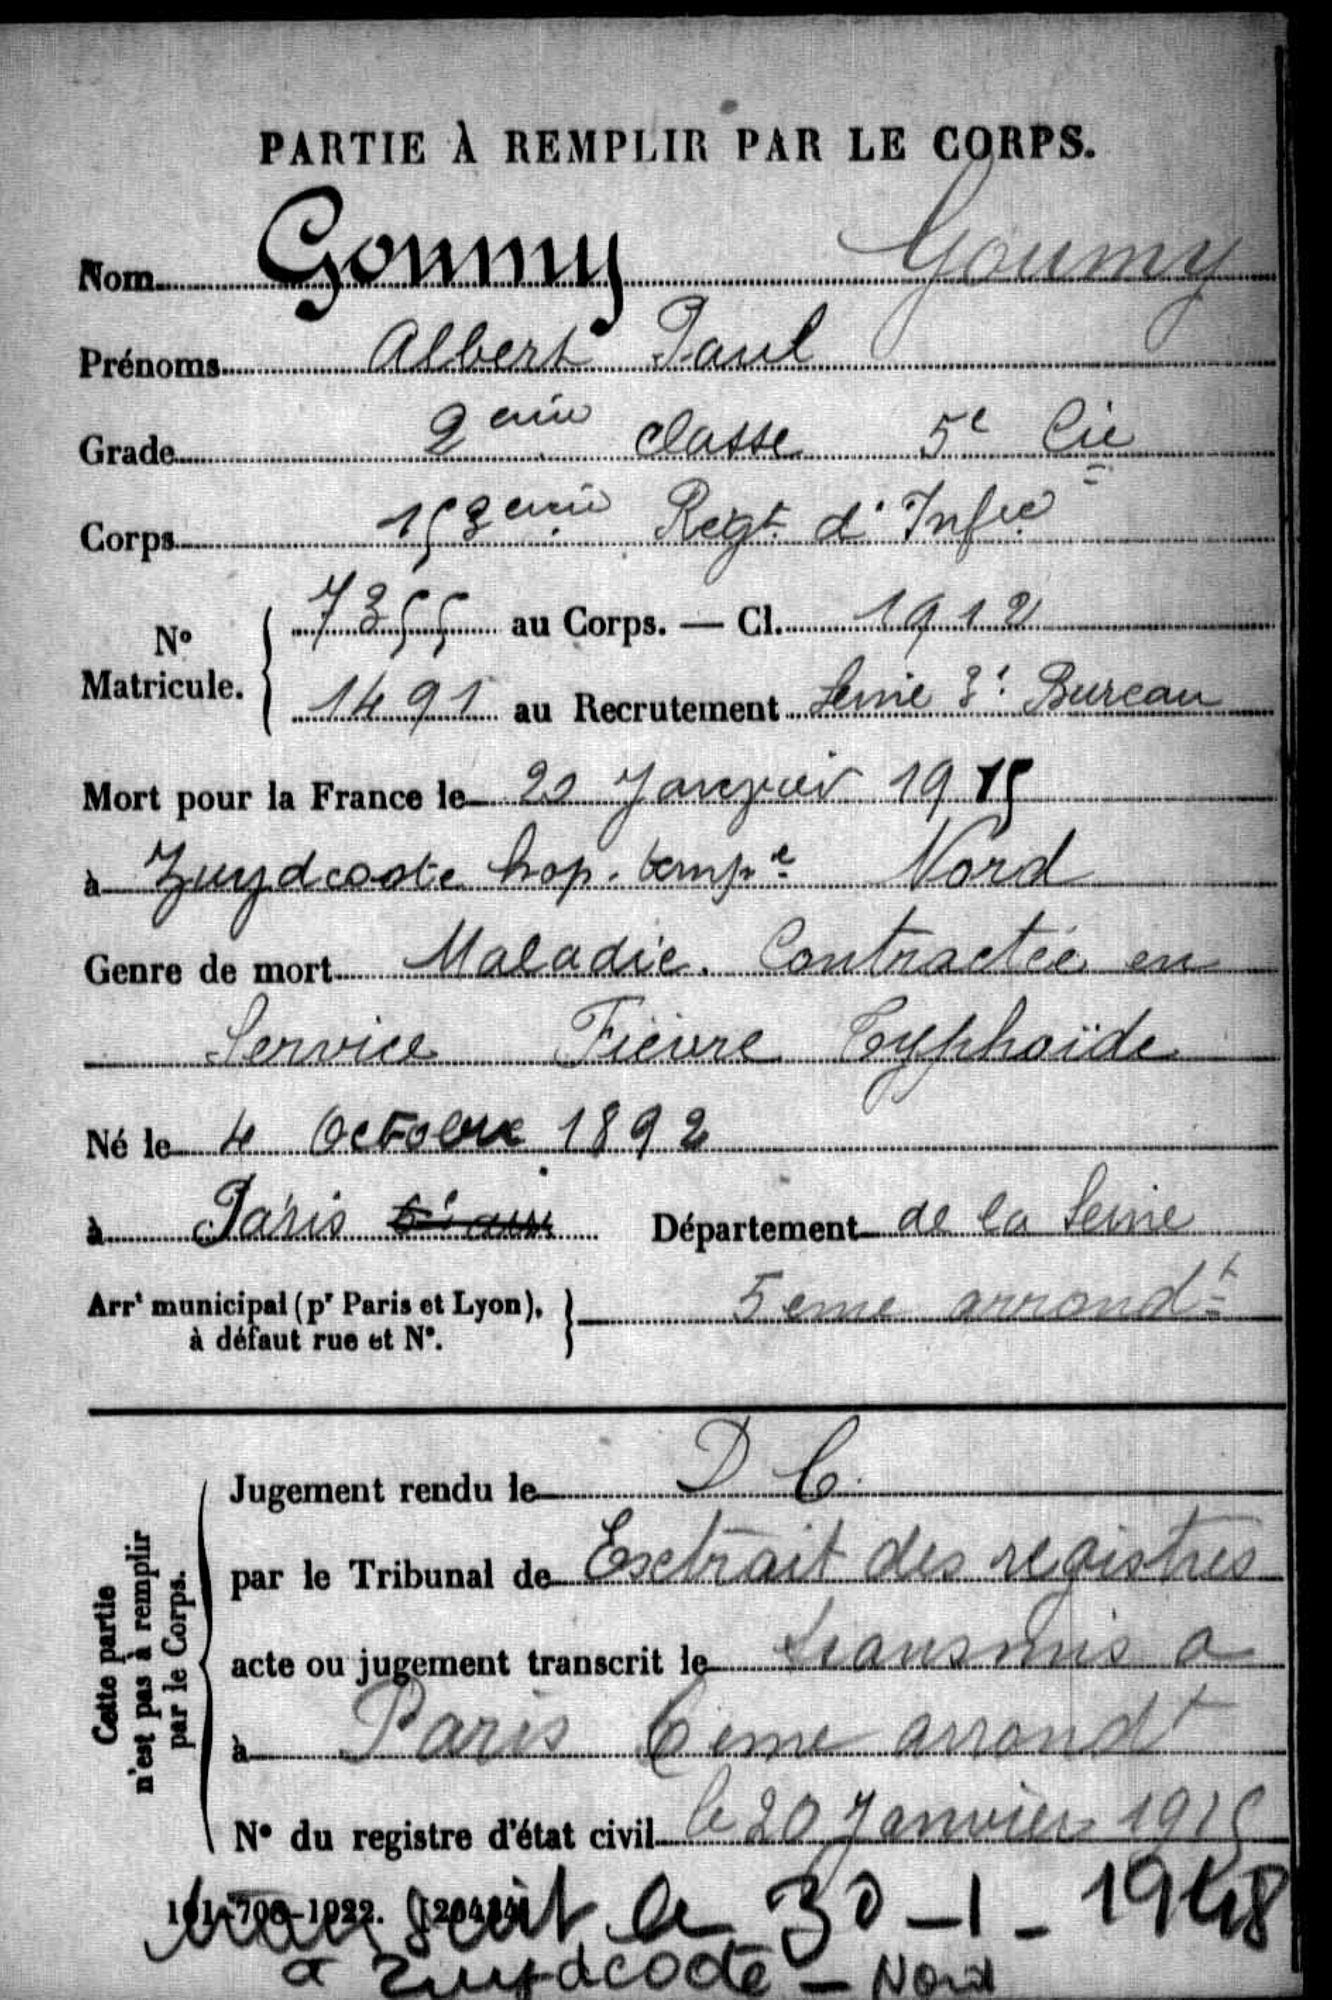 PARTIE À REMPLIR PAR LE CORPS.
Nom Goumy Goumy
Prénoms Albert Paul
Grade 2eme classe 5e Cie
Corps 153eme Régt d'Infie
No Matricule. 7355 au Corps. — Cl. 1912
1491 au Recrutement Seine 3e Bureau
Mort pour la France le 20 Janvier 1915
à Zuydcoote hop. tempre Nord
Genre de mort Maladie. Contractée en
Service Fièvre Typhoïde
Né le 4 Octobre 1892
à Paris 6e arr Département de la Seine
Arrt municipal (pr Paris et Lyon), à défaut rue et No. 5eme arrondt
Cette partie n'est pas à remplir par le Corps.
Jugement rendu le D C.
par le Tribunal de Extrait des registres
acte ou jugement transcrit le transmis a
à Paris 6eme arrondt
No du registre d'état civil le 20 Janvier 1915
101-708-1922. [26434]
le 30-1-1948
a Zuydcoote - Nord